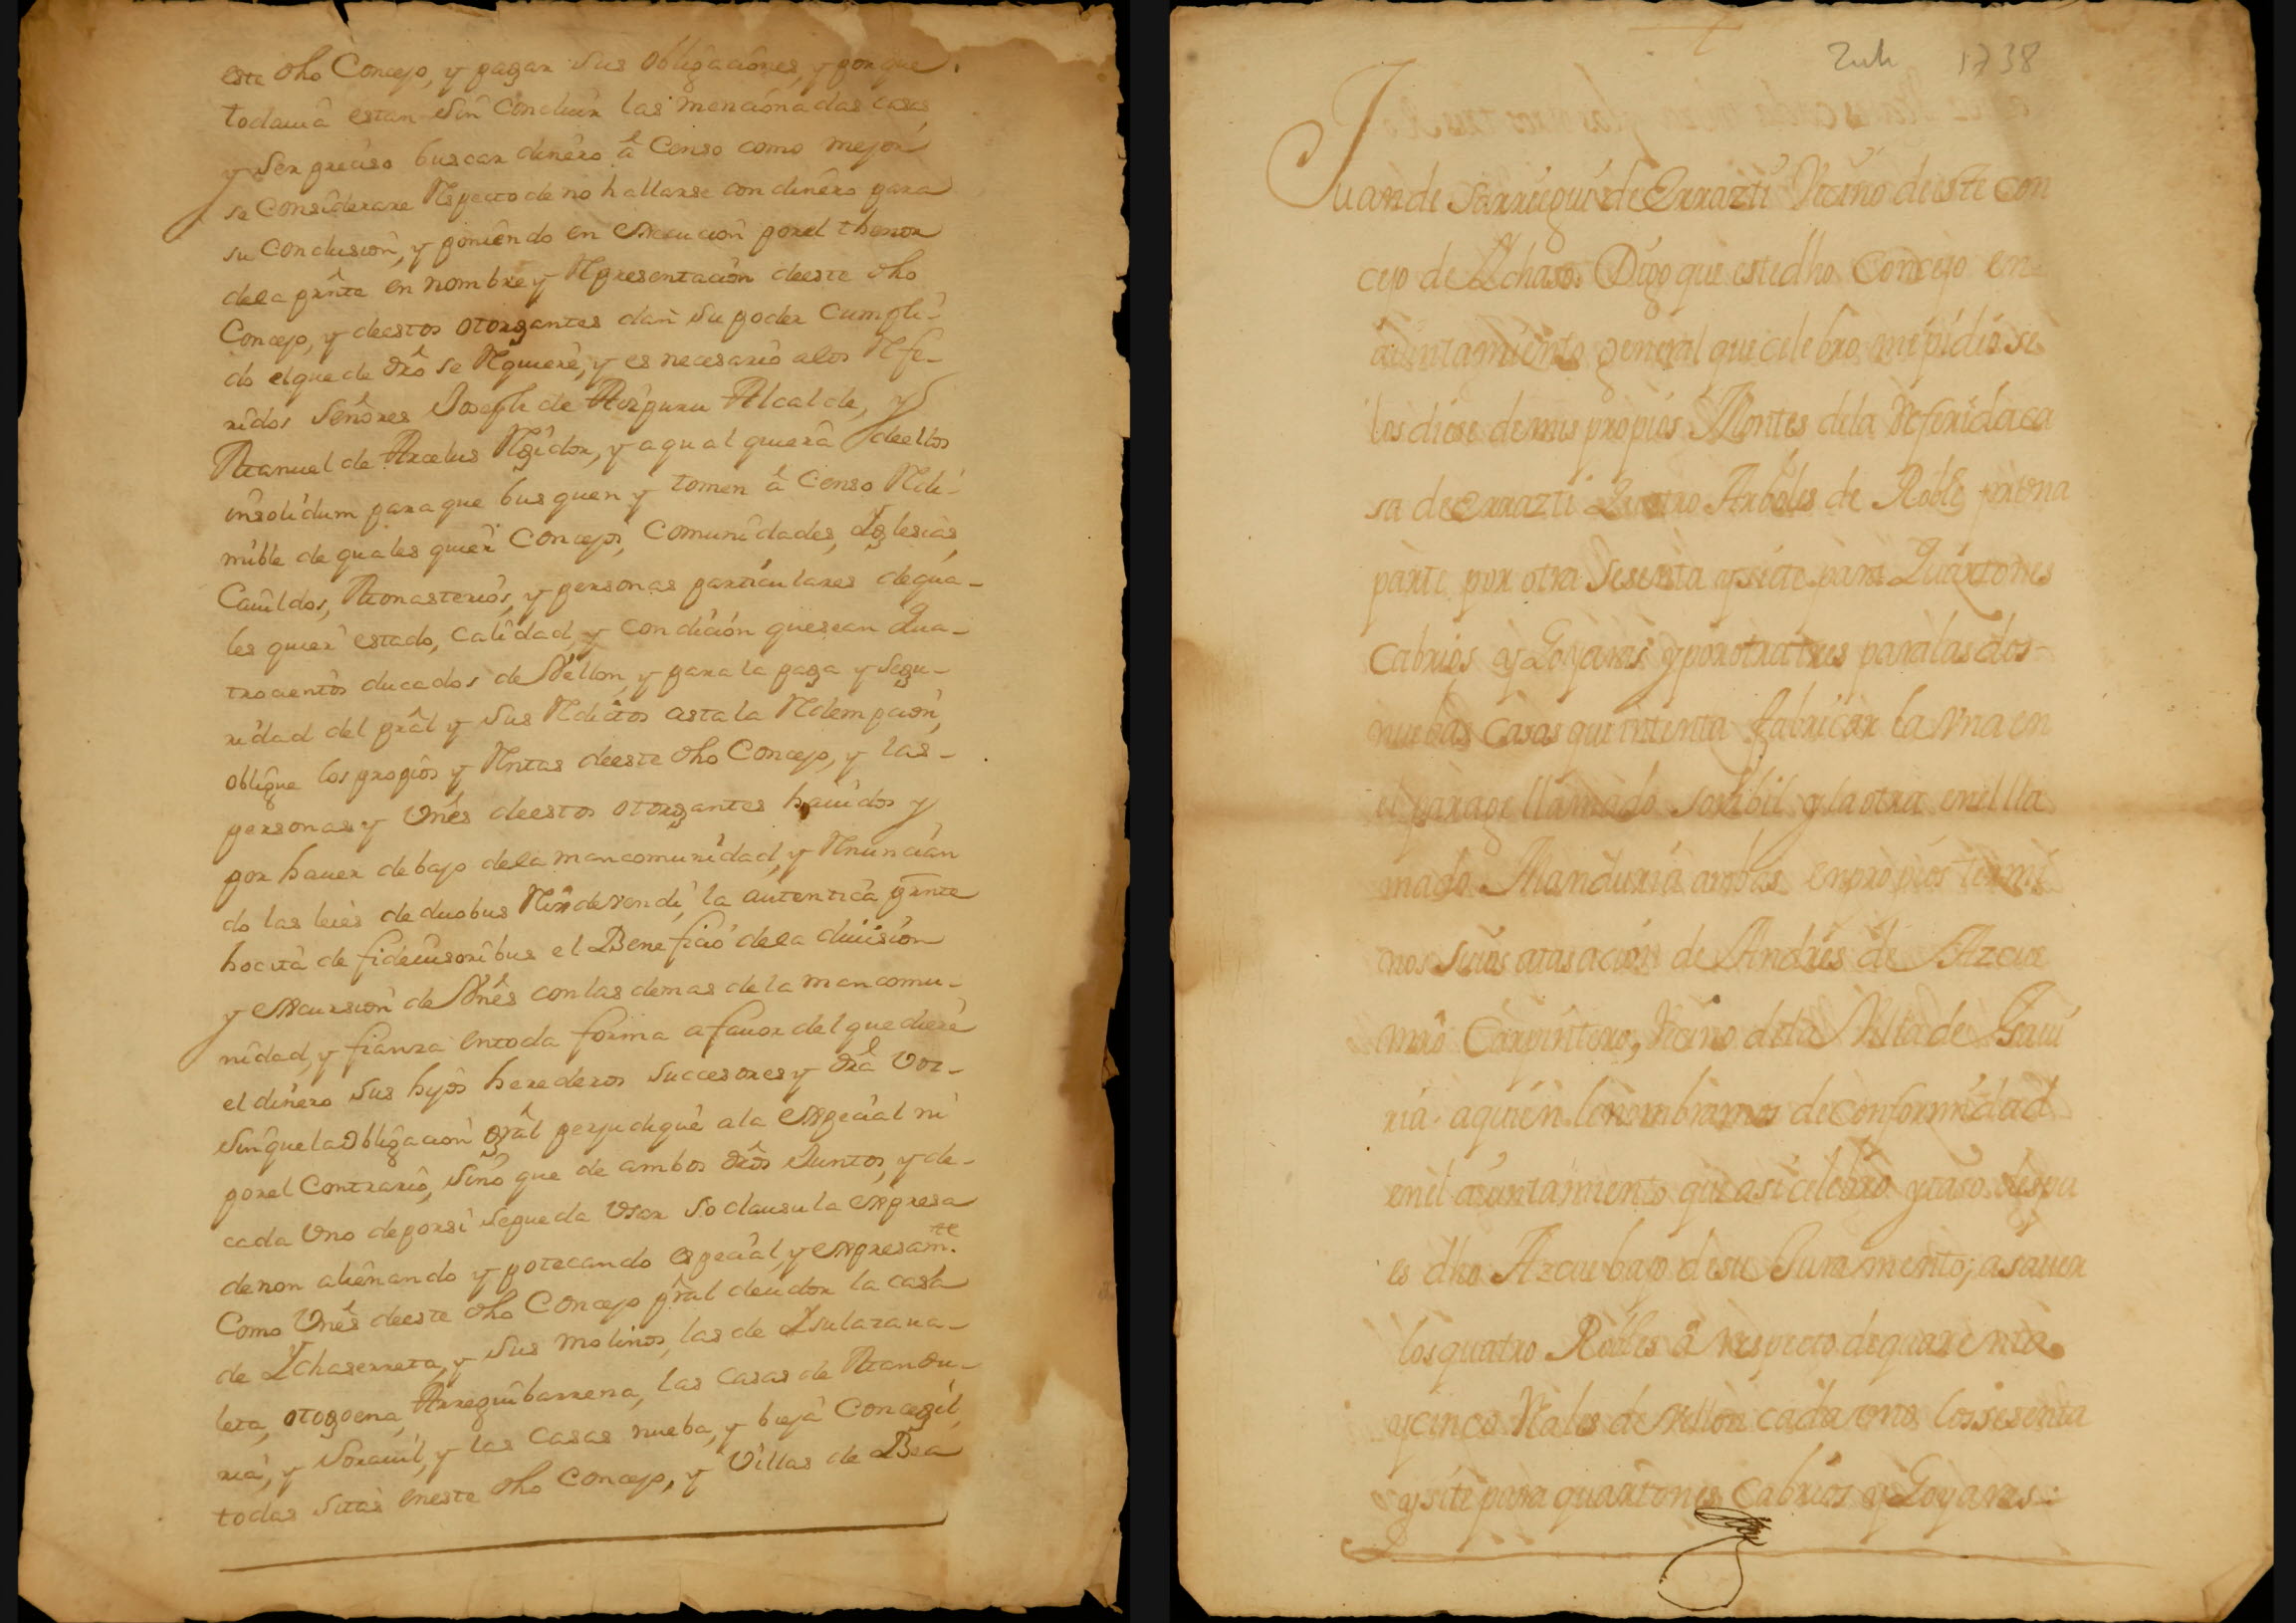 este dho Concejo, y pagar sus obligaciones, y porque
todauia estan sin concluir las mencionadas casas
y ser preciso buscar dinero â Censo como mejor
se considerare Respecto de no hallarse con dinero para
su conclusion, y poniendo en execucion por el thenor
de la prnte en nombre y Representacion de este dho
Concejo, y de estos otorgantes dan su poder cumpli-
do el que de dro se Requiere, y es necesario a los Refe-
ridos Señores Joseph de Aizpuru Alcalde, y
Manuel de Arcelus Regidor, y a qualquiera de ellos
insolidum para que busquen y tomen â Censo Redi-
mible de quales quier Concejos, Comunidades, Iglesias,
Cauildos, Monasterios, y personas particulares de qua-
les quier estado, calidad, y condicion que sean Qua-
trocientos ducados de Vellon, y para la paga y segu-
ridad del pral y sus Reditos asta la Redempcion,
oblige los propios y Rentas de este dho Concejo, y las-
personas y Vnes de estos otorgantes hauidos y
por hauer debajo de la mancomunidad, y Renuncian
do las leies de duobus Rex devendi, la autentica prnte
hocita de fideiusoribus el Beneficio de la diuision
y excursion de Vnes con las demas de la mancomu-
nidad, y fianza en toda forma a fauor del que diere
el dinero sus hijos herederos successores y dra voz-
sin que la obligacion gral perjudique a la especial ni
por el contrario, sino que de ambos dros Juntos, y de-
cada Vno de por si se pueda Vsar so clausula expresa
de non alienando ypotecando especial, y expresamte.
Como Vnes de este dho Concejo pral deudor la casa
de Ichaserreta, y sus molinos, las de Isulazaua-
leta, otogoena, Arreguibarrena, las casas de Mandu-
ria, y Sorauil, y las casas nueba, y bieja Concegil,
todas sitas en este dho Concejo, y Villas de Bea
Zuh 1738
Juan de Sarriegui de Errazti Vecino de este Con
cejo de Ychaso. Digo que este dho Concejo en
aiuntamiento general que celebro, me pidio se
los diese de mis propios Montes de la Referida ca
sa de Errazti Quatro Arboles de Roble por una
parte, por otra Sesenta y siete para Quartones
Cabrios y Goyares y por otra tres para las dos-
nuebas Casas que intenta fabricar la Vna en
el parage llamado Sorabil y la otra en el lla
mado Manduria ambas en propios termi
nos suios a tasacion de Andres de Azcue
mro Carpintero, Vecino de la Villa de Gaui
ria, a quien le nombramos de conformidad
en el aiuntamiento que asi celebro y taso despu
es dho Azcue bajo de su Juramento; a sauer
los quatro Robles â respecto de quarenta
y cinco Rales de Vellon cada vno los sesenta
y siete para quartones Cabrios y Goyares: